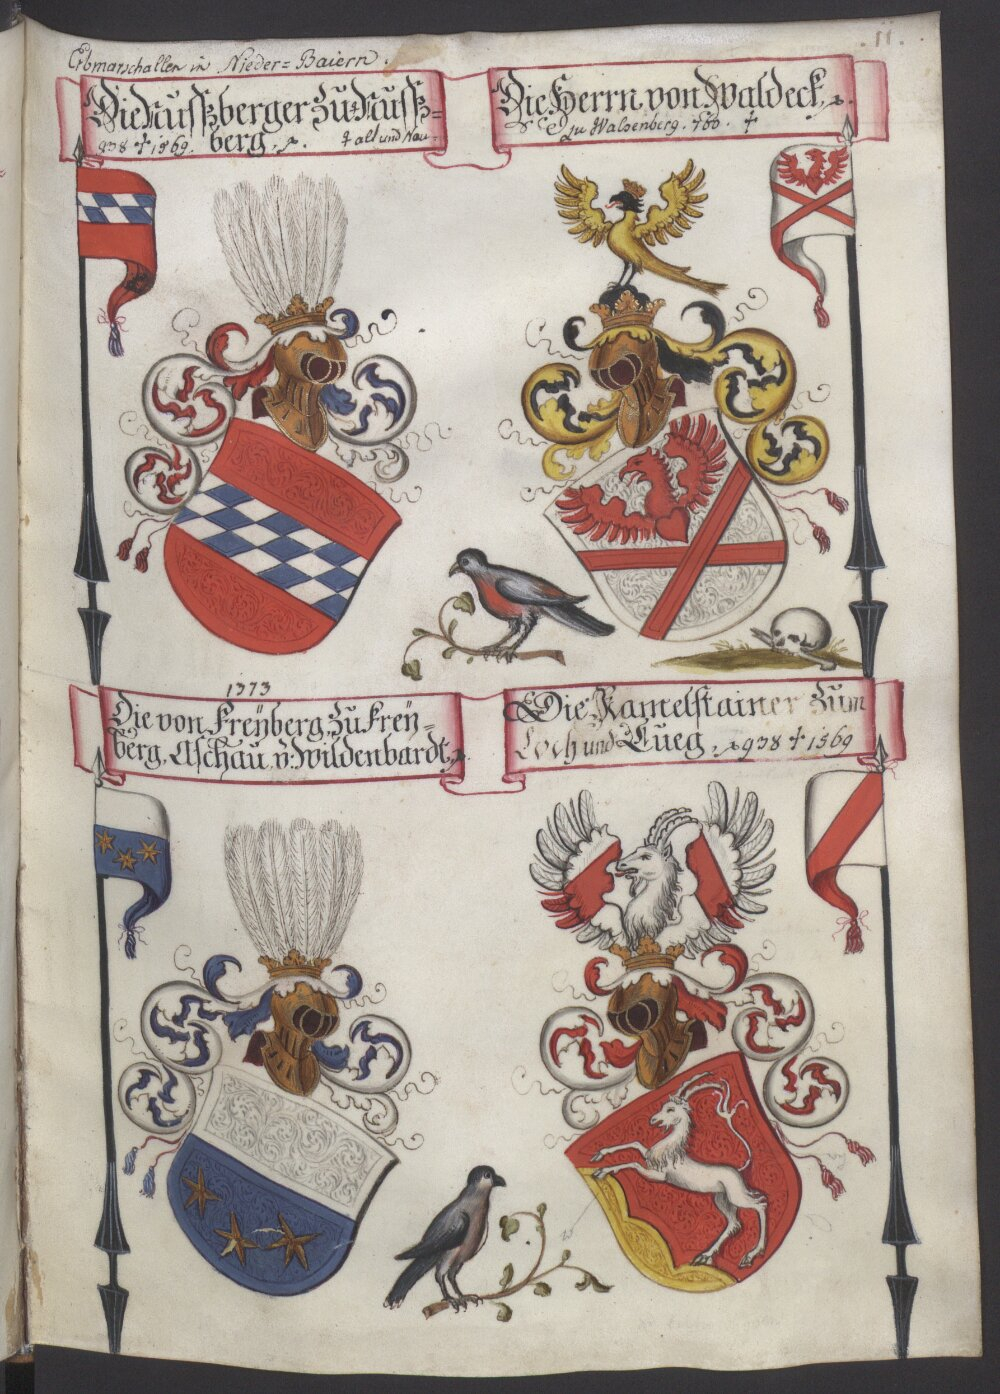 .11.
Erbmarschallen in Nieder=Baiern.
Die Nussberger zu Nuss=
938 † 1569. berg, † alt und Nau
Die Herrn von Waldeck,
zu Walsenberg. 760. †
1373
Die von Freÿberg, zu Freÿ=
berg, Aschau, v: Wildenbardt,
Die Ramelstainer zum
Loch und Lueg, 938 † 1569